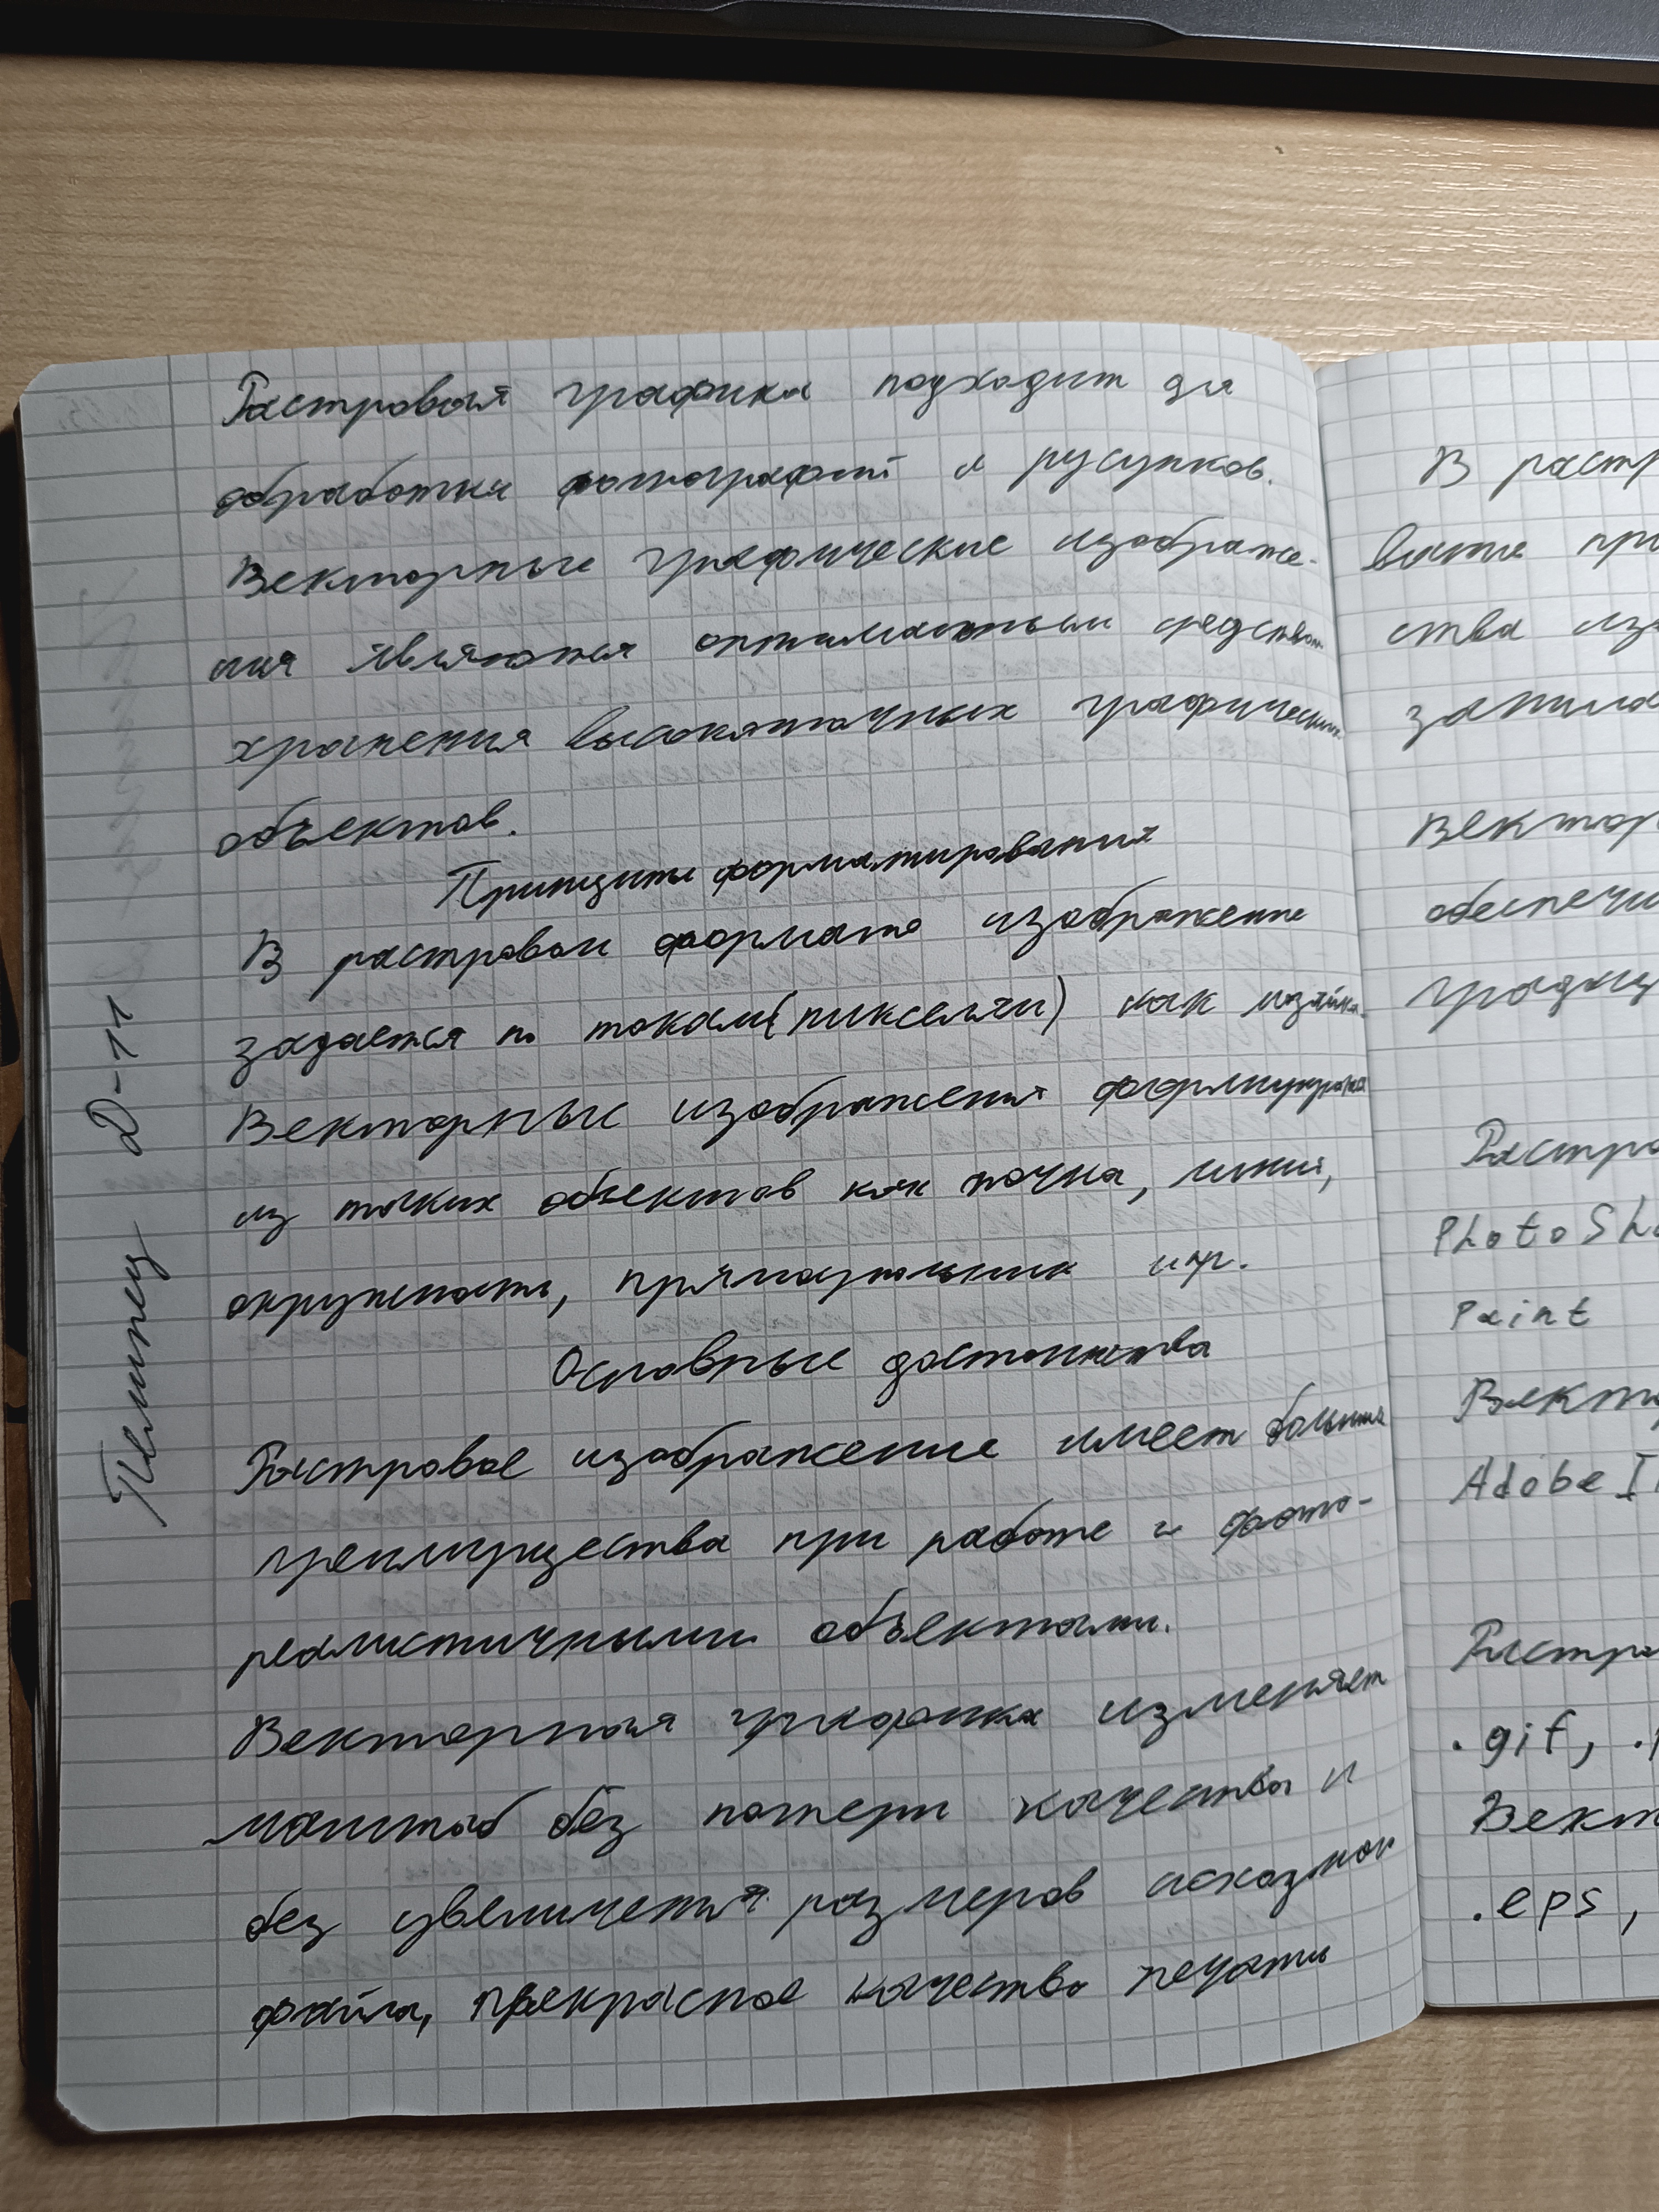 Растровая графика подходит для
обработки фотографий и русунков.
Векторные графические изображе-
ния являются оптимальным средством
хранения высокоточных графических
объектов.
Принципы форматирования
В растровом формате изображение
задается по токам(пикселям) как мозаика.
Векторные изображения формируются
из таких объектов как точка, линия,
окружность, прямоугольник и пр.
Основные достоинства
Растровое изображение имеет больше
преимущества при работе с фото-
реалистичными объектами.
Векторная графика изменяет
масштаб без потери качества и
без увеличения размеров исходного
файла, прекрасное качество печати
Д-11
В растр
ства из
Вектор
обеспечи
градиц
Растро
PhotoSho
Paint
Векто
Adobe Il
Растро
.gif, .
Векто
.eps,